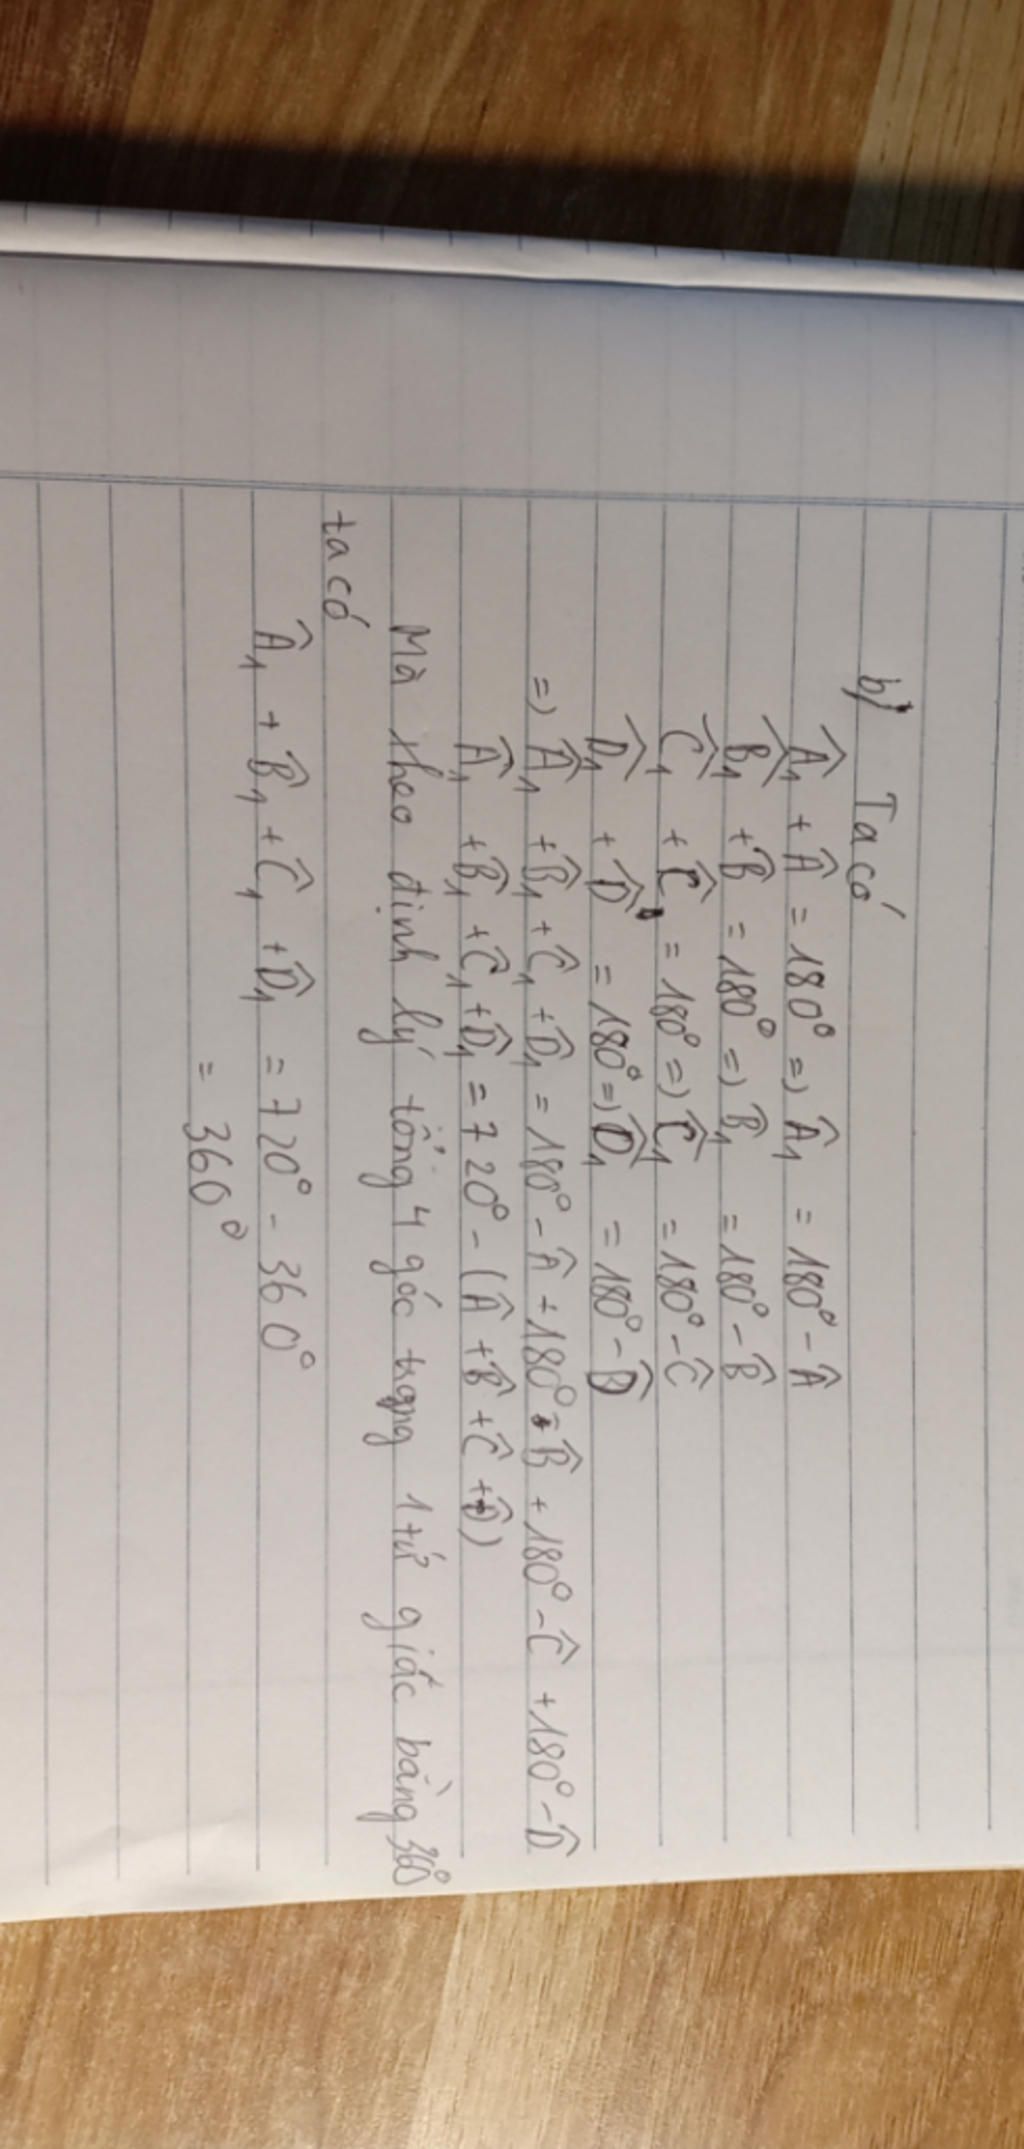 b) Ta có
Â₁ + Â = 180° => Â₁ = 180° - Â
B̂₁ + B̂ = 180° => B̂₁ = 180° - B̂
Ĉ₁ + Ĉ = 180° => Ĉ₁ = 180° - Ĉ
D̂₁ + D̂ = 180° => D̂₁ = 180° - D̂
=> Â₁ + B̂₁ + Ĉ₁ + D̂₁ = 180° - Â + 180° - B̂ + 180° - Ĉ + 180° - D̂
Â₁ + B̂₁ + Ĉ₁ + D̂₁ = 720° - (Â + B̂ + Ĉ + D̂)
Mà theo định lý tổng 4 góc trong 1 tứ giác bằng 360°
ta có
Â₁ + B̂₁ + Ĉ₁ + D̂₁ = 720° - 360°
= 360°